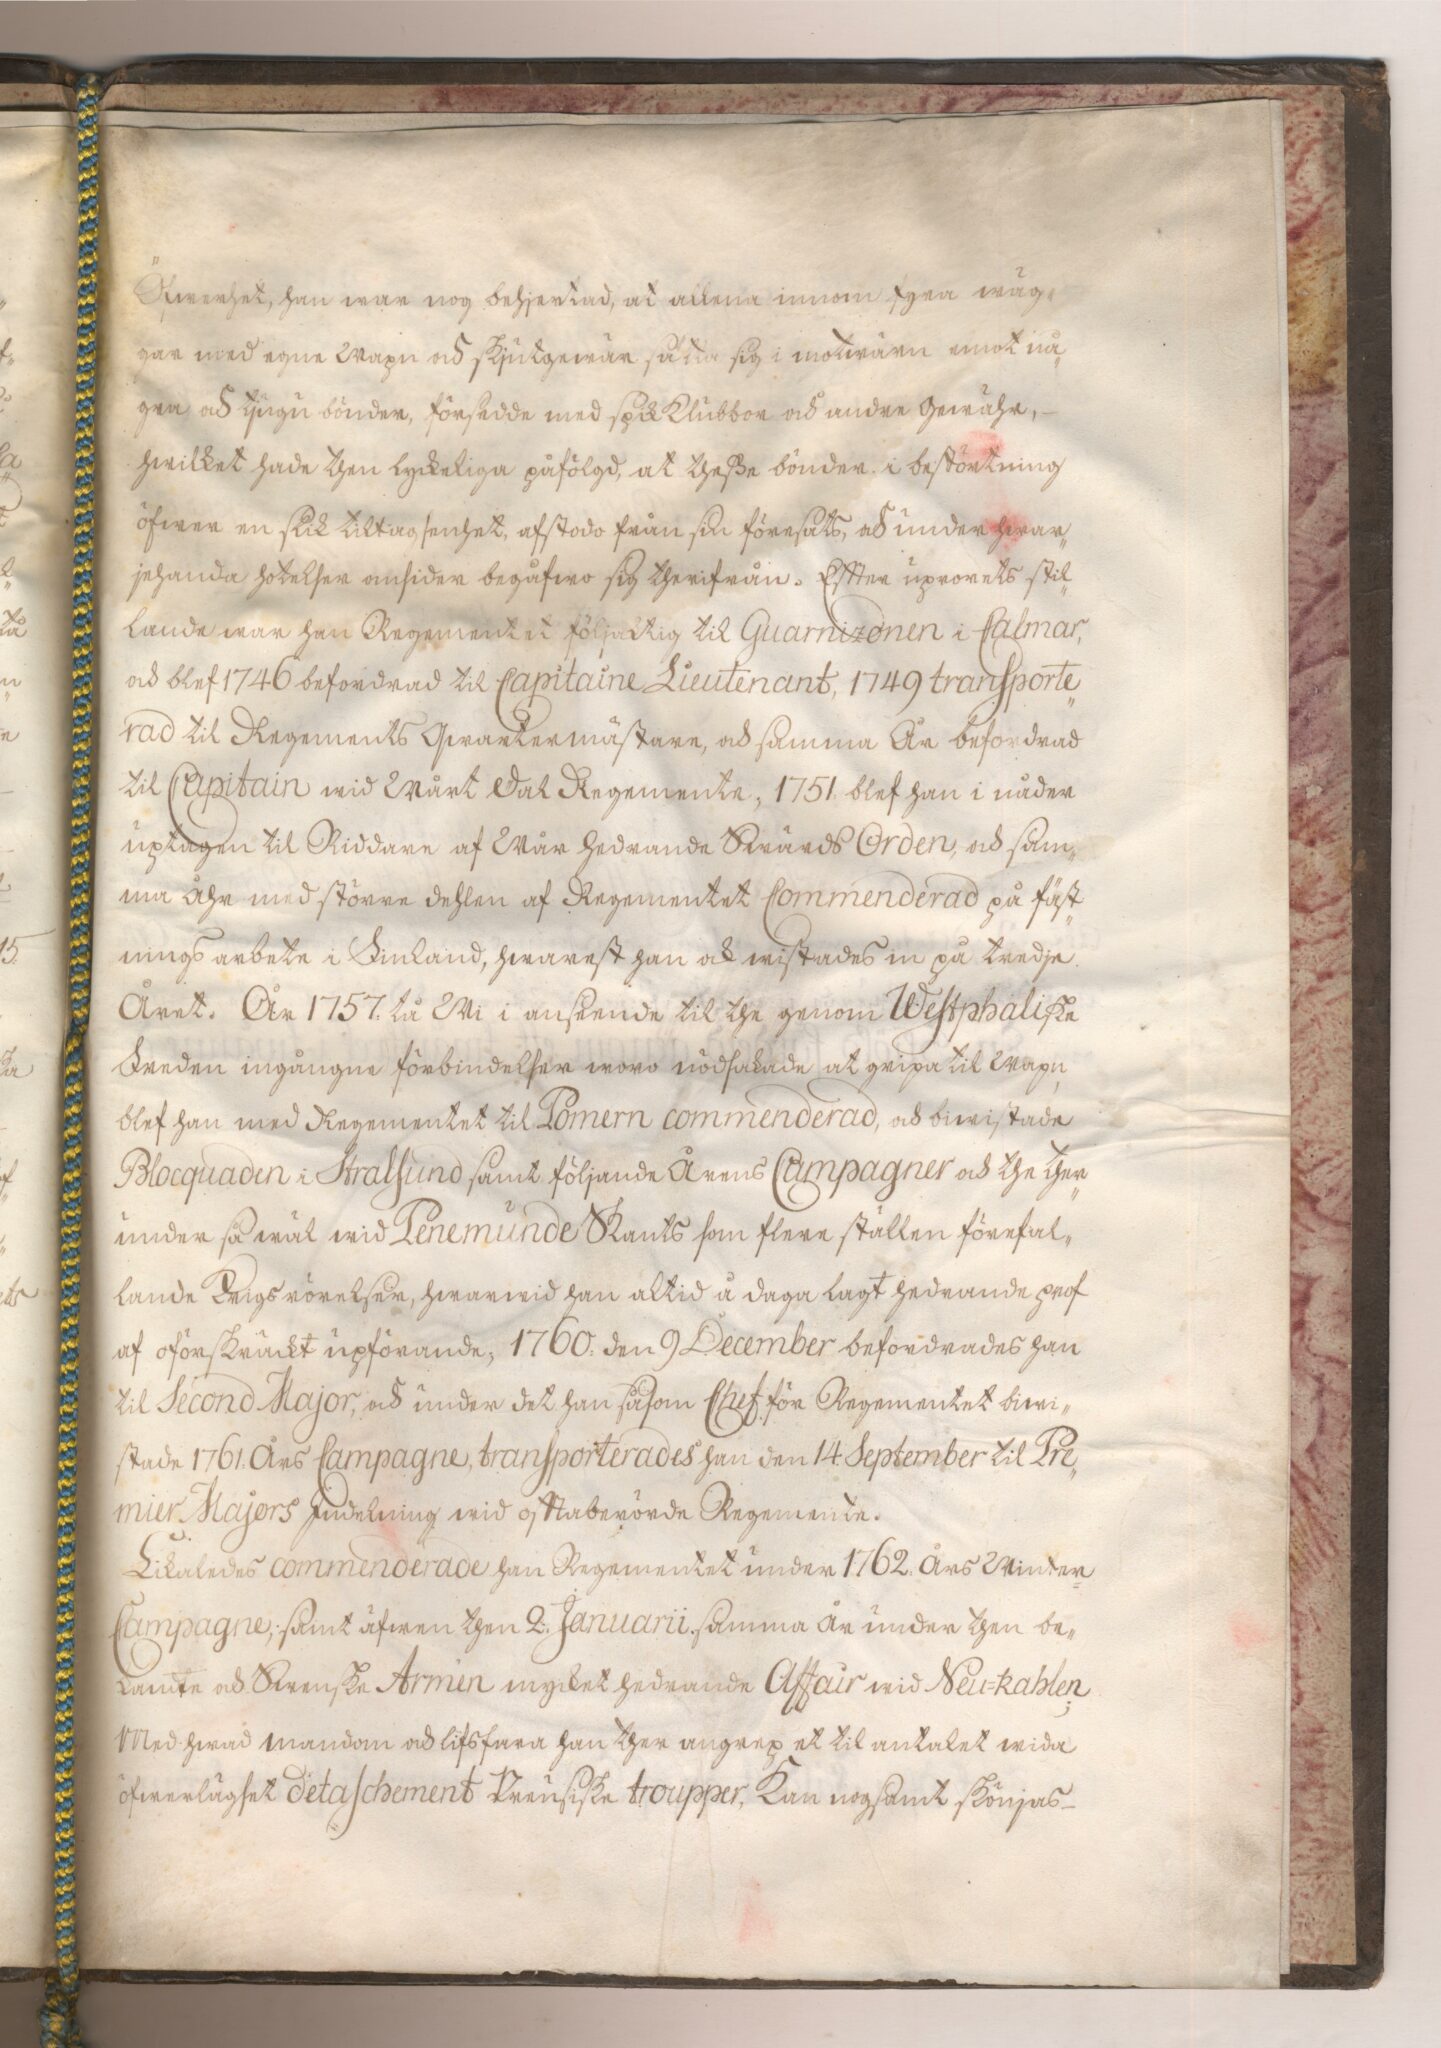 Öfwerhet, han war nog behjertad, at allena innom fyra wäg„
gar med egne Wapn och skjutgewär sätta sig i motwärn emot nå„
gra och tjugu bönder, försedde med spik Klubbor och andre Gewähr, –
hwilket hade then lyckeliga påfölgd, at thesse bönder i bestörtning
öfwer en slik tiltagsenhet, afstodo från sin föresats, och under hwar„
jehanda hotelser omsider begåfwo sig therifrån. Efter uprorets stil„
lande war han Regementet följaktig til Guarnizonen i Calmar,
och blef 1746 befordrad til Capitaine Lieutenant, 1749 transporte„
rad til Regements Qwartermästare, och samma År befordrad
til Capitain wid Wårt Dal Regemente, 1751. blef han i nåder
uptagen til Riddare af Wår hedrande Swärds Orden, och sam„
ma Åhr med större dehlen af Regementet Commenderad på fäst„
nings arbete i Finland, hwarest han ock wistades in på tredje
Året. År 1757. tå Wi i anseende til the genom Westphaliske
Freden ingångne förbindelser woro nödsakade at gripa til Wapn,
blef han med Regementet til Pomern commenderad, och biwistade
Blocquaden i Stralsund samt följande Årens Campagner och the ther„
under så wäl wid Penemünde Skants som flere ställen förefal„
lande Krigsrörelser, hwarwid han altid å daga lagt hedrande prof
af oförskräckt upförande; 1760. den 9 December befordrades han
til Second Major, och under det han såsom Chef för Regementet biwi„
stade 1761. Års Campagne, transporterades han den 14 September til Pre„
mier Majors Indelning wid oftaberörde Regemente.
Likaledes commenderade han Regementet under 1762. Års Winter„
Campagne, samt äfwen then 2. Januarii. samma År under then be„
kante och Swenske Armén mycket hedrande Affair wid Neu=kahlen;
Med hwad mandom och lifsfara han ther angrep et til antalet wida
öfwerlägset detaschement Preusiske troupper, Kan nogsamt skönjas –